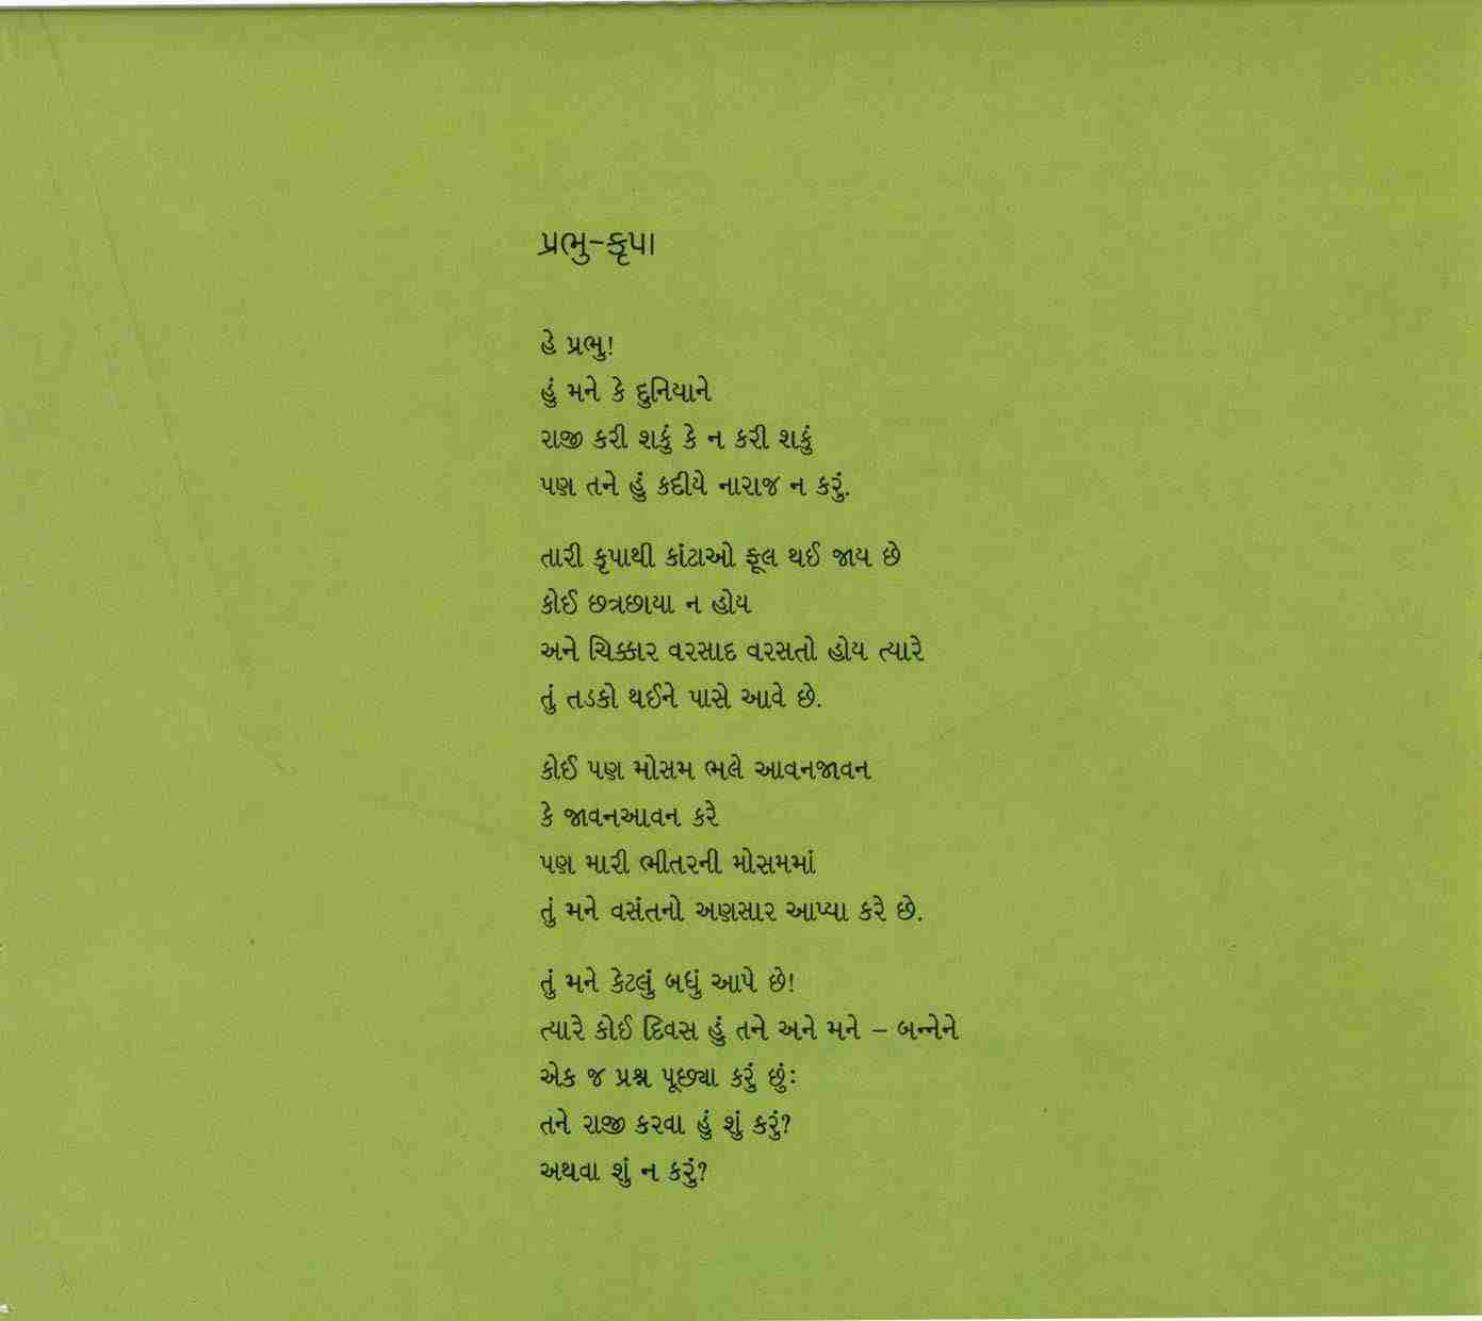 પ્રભુ-કૃપા
હે પ્રભુ!
હું મને કે દુનિયાને
રાજી કરી શકું કે ન કરી શકું
પણ તને હું કદીયે નારાજ ન કરું.
તારી કૃપાથી કાંટાઓ ફૂલ થઈ જાય છે
કોઈ છત્રછાયા ન હોય
અને ચિક્કાર વરસાદ વરસતો હોય ત્યારે
તું તડકો થઈને પાસે આવે છે.
કોઈ પણ મોસમ ભલે આવનજાવન
કે જાવનઆવન કરે
પણ મારી ભીતરની મોસમમાં
તું મને વસંતનો અણસાર આપ્યા કરે છે.
તું મને કેટલું બધું આપે છે!
ત્યારે કોઈ દિવસ હું તને અને મને – બન્નેને
એક જ પ્રશ્ન પૂછ્યા કરું છું:
તને રાજી કરવા હું શું કરું?
અથવા શું ન કરું?